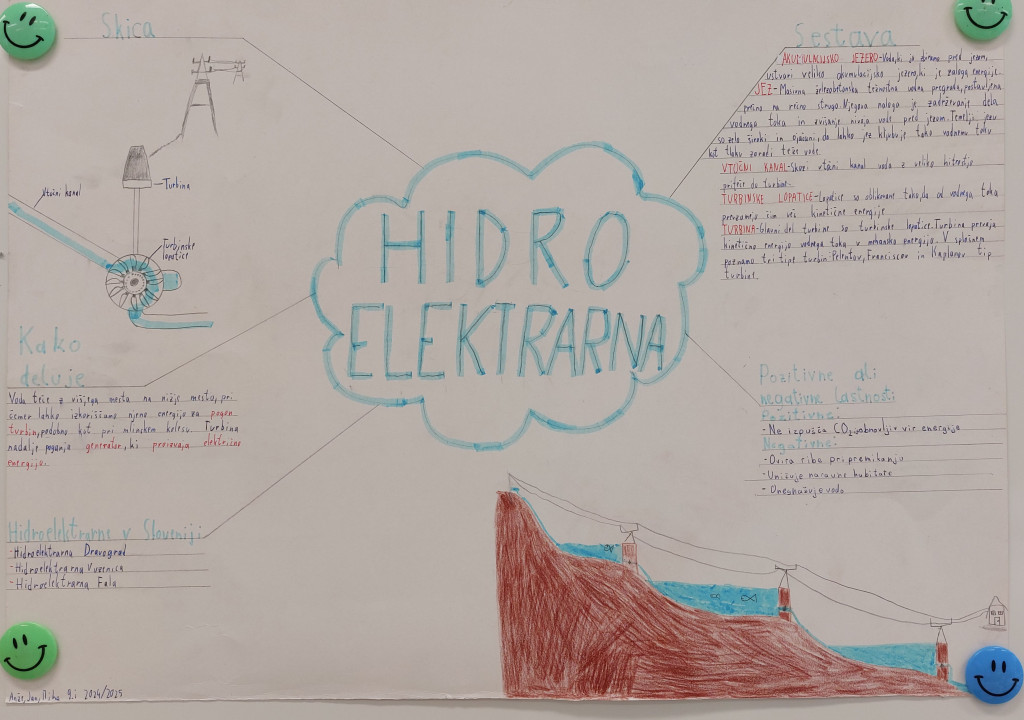 Skica
Vtočni kanal
Turbina
Turbinske
lopatice
HIDRO
ELEKTRARNA
Sestava
AKUMULACIJSKO JEZERO-Voda, ki jo zbiramo pred jezom,
ustvari veliko akumulacijsko jezero, ki je zaloga energije.
JEZ-Masivna železobetonska težnostna vodna pregrada, postavljena
prečno na rečno strugo. Njegova naloga je zadrževanje dela
vodnega toka in zvišanje nivoja vode pred jezom. Temelji jezu
so zelo široki in ojačani, da lahko jez kljubuje tako vodnemu toku
kot tlaku zaradi teže vode.
VTOČNI KANAL-Skozi vtočni kanal voda z veliko hitrostjo
priteče do turbine.
TURBINSKE LOPATICE-Lopatice so oblikovane tako, da od vodnega toka
prevzamejo čim več kinetične energije
TURBINA-Glavni del turbine so turbinske lopatice. Turbina prevaja
kinetično energijo vodnega toka v mehansko energijo. V splošnem
poznamo tri tipe turbin: Peltonov, Francisov in Kaplanov tip
turbine.
Kako
deluje
Voda teče z višjega mesta na nižje mesto, pri
čemer lahko izkoriščamo njeno energijo za pogon
turbin, podobno kot pri mlinskem kolesu. Turbina
nadalje poganja generator, ki proizvaja električno
energijo.
Pozitivne ali
negativne lastnosti
Pozitivne:
- Ne izpušča CO2, obnovljiv vir energije
Negativne:
- Ovira ribe pri premikanju
- Uničuje naravne habitate
- Onesnažuje vodo
Hidroelektrarne v Sloveniji
-Hidroelektrarna Dravograd
-Hidroelektrarna Vuzenica
-Hidroelektrarna Fala
Jan, 9.i 2024/2025